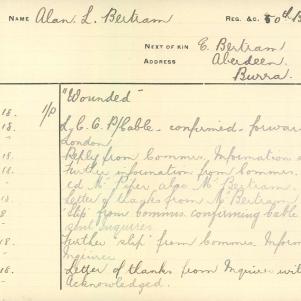 NAME Alan L. Bertram REG. &C. 50th B
NEXT OF KIN E. Bertram
ADDRESS Aberdeen
Burra.
"Wounded"
18. 1/P
18. L.C.C. P/Cable - confirmed - forward
London
18. Reply from Commrs. Information
18. Further information from Commrs.
Mr Bertram.
18. Letter of thanks from Mr Bertram
8 "Slip" from Commrs confirming cable
sent Inquirer.
18. Further "slip" from Commrs. Inform
Inquirer
18. Letter of thanks from Inquirer with
Acknowledged.